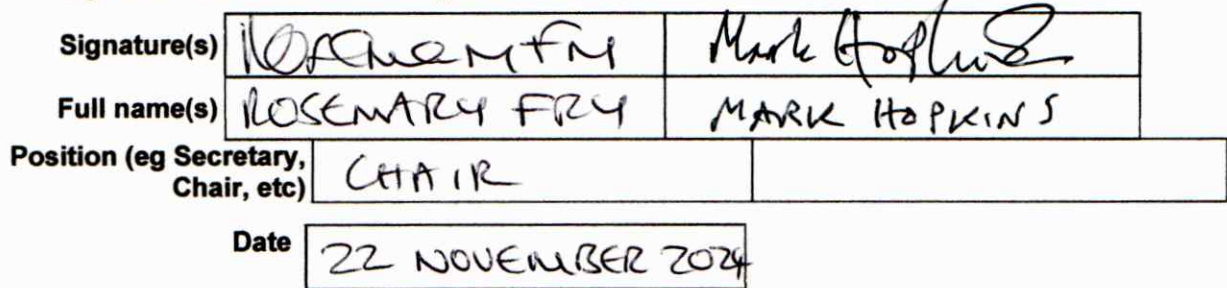 Signature(s) Mark Hopkins
Full name(s) ROSEMARY FRY MARK HOPKINS
Position (eg Secretary,
Chair, etc) CHAIR
Date 22 NOVEMBER 2024